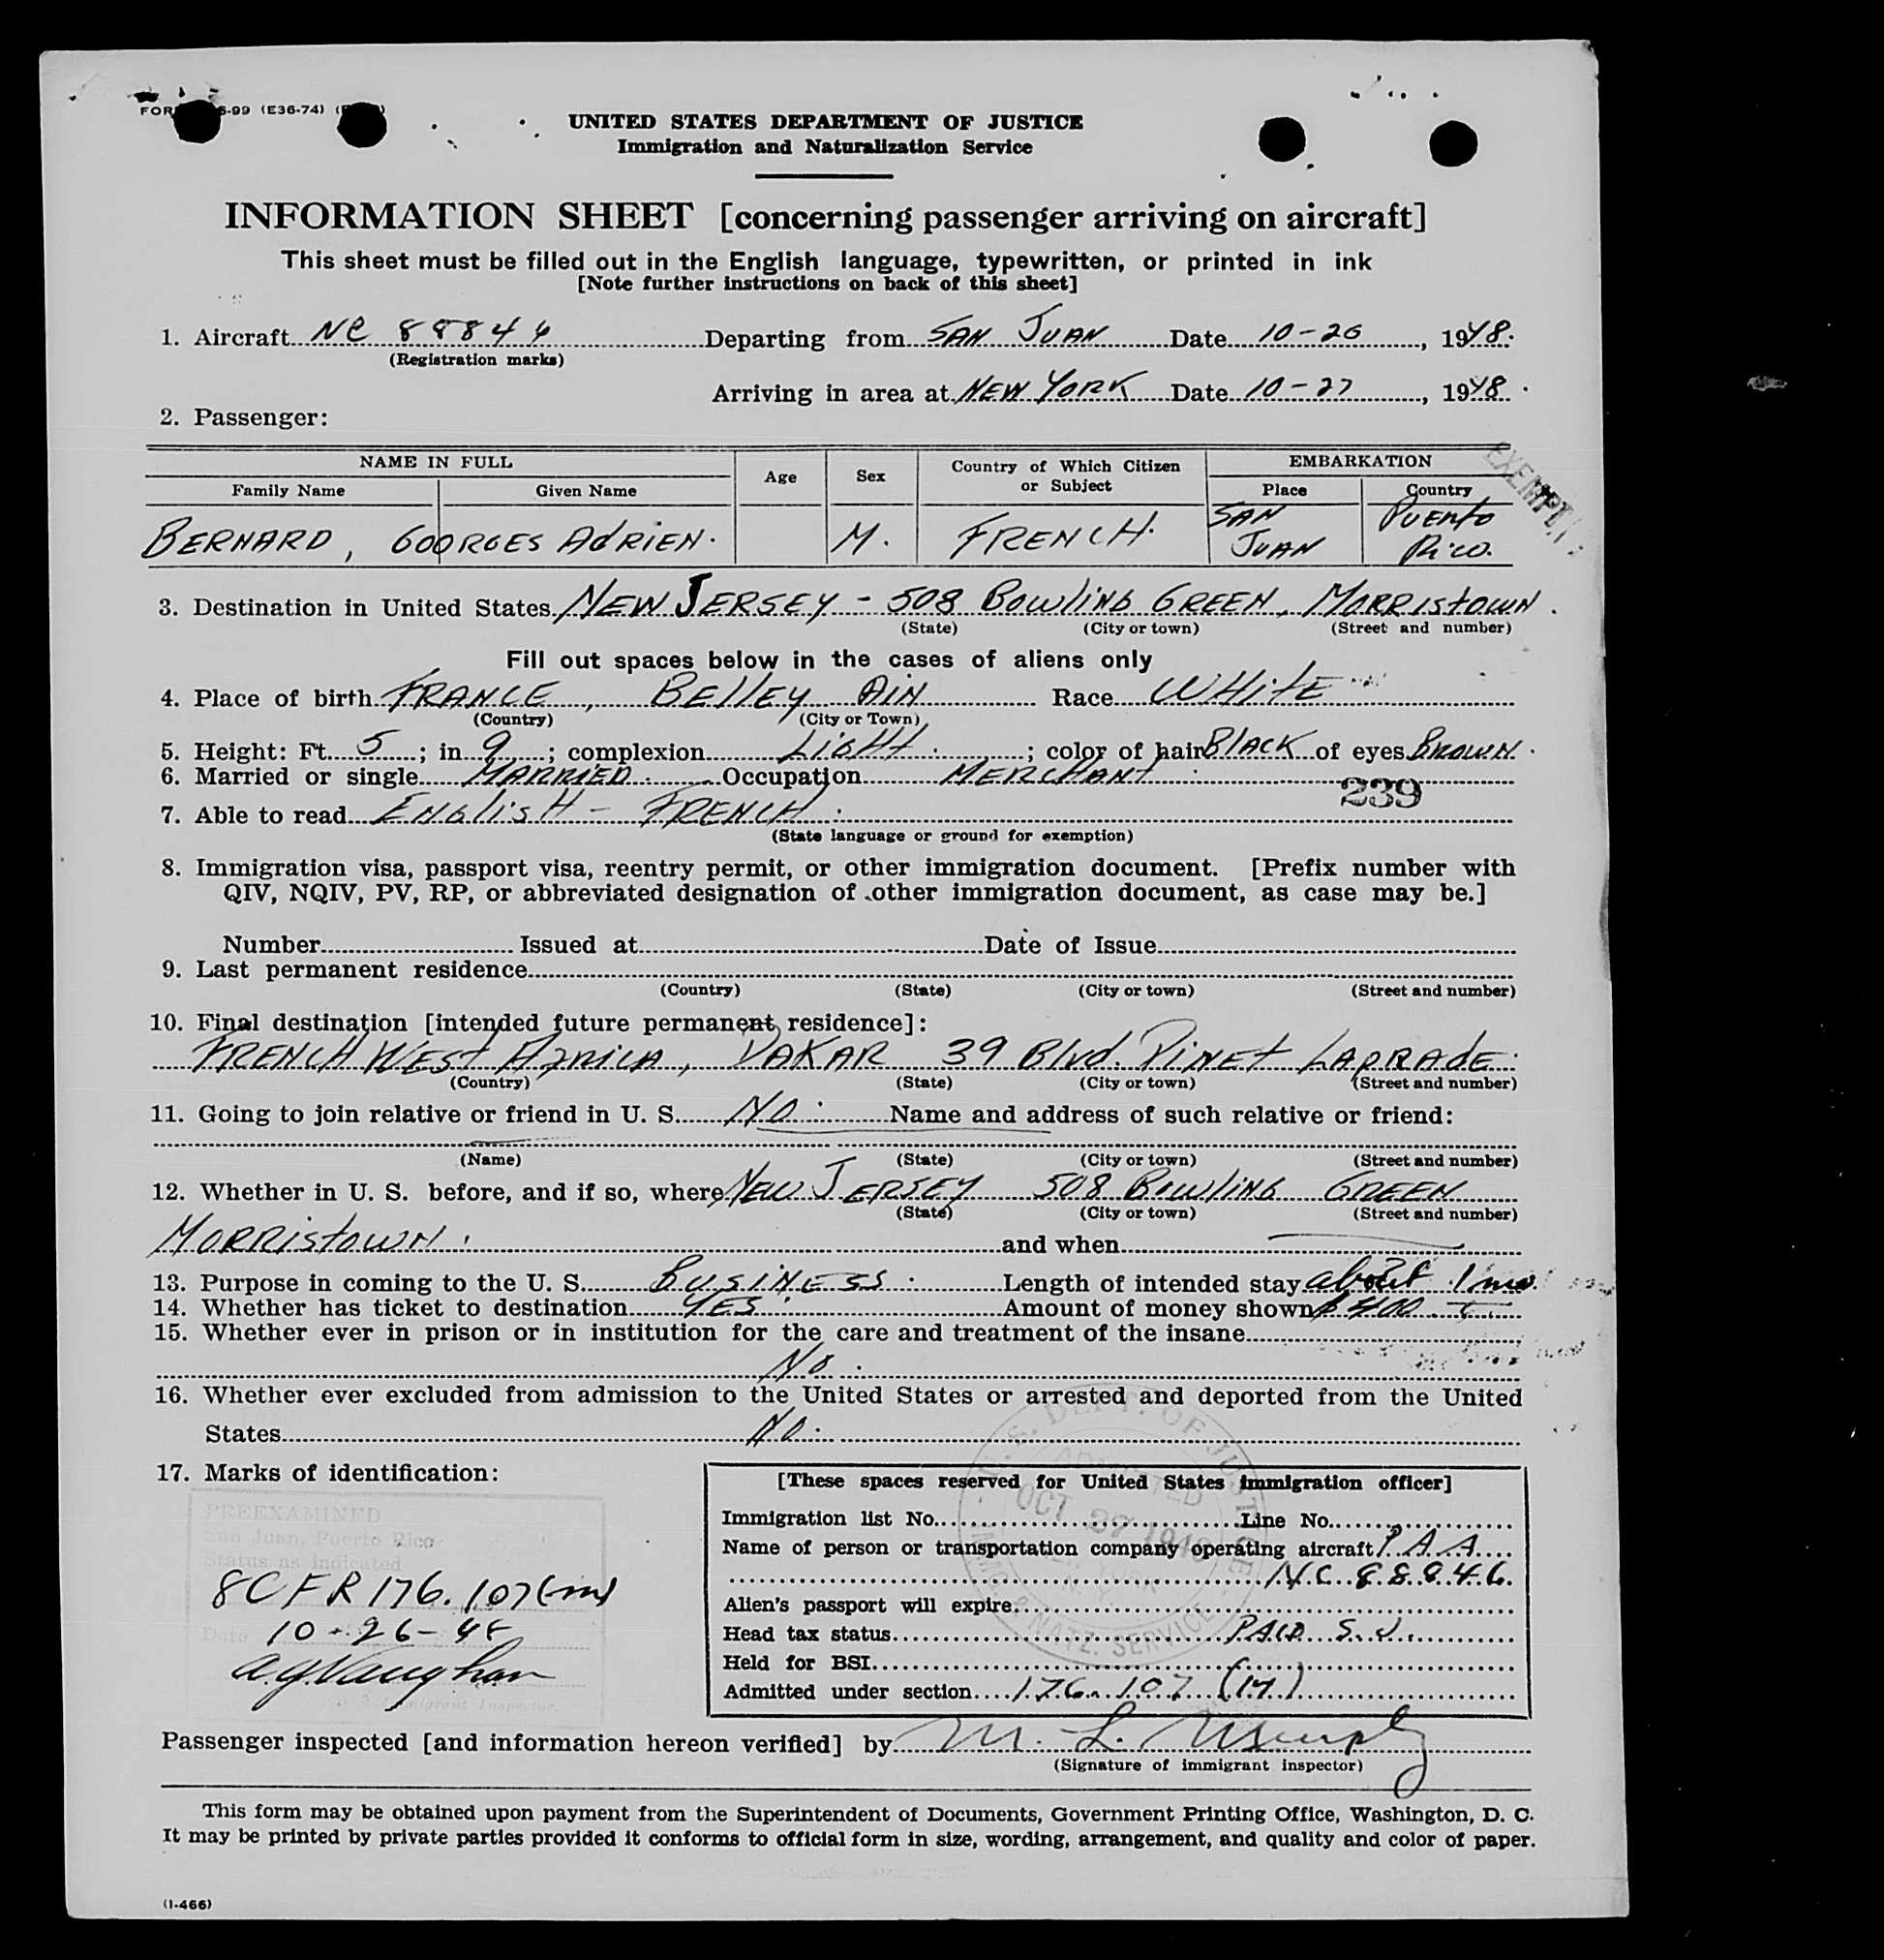 UNITED STATES DEPARTMENT OF JUSTICE
Immigration and Naturalization Service
INFORMATION SHEET [concerning passenger arriving on aircraft]
This sheet must be filled out in the English language, typewritten, or printed in ink
[Note further instructions on back of this sheet]
1. Aircraft NC 88846 Departing from SAN JUAN Date 10-26, 1948.
(Registration marks)
Arriving in area at NEW YORK Date 10-27, 1948.
2. Passenger:
NAME IN FULL Age Sex Country of Which Citizen or Subject EMBARKATION
Family Name Given Name Place Country
EXEMPT
BERNARD, GOORGES AdRIEN. M. FRENCH. SAN JUAN PUERto Rico.
3. Destination in United States NEW JERSEY - 508 BowliNG GREEN, MORRIStOWN.
(State) (City or town) (Street and number)
Fill out spaces below in the cases of aliens only
4. Place of birth FRANCE, BEllEy AIN Race WHitE
(Country) (City or Town)
5. Height: Ft. 5; in 9; complexion LiGHt.; color of hair BlACK of eyes BROWN.
6. Married or single MARRiED. Occupation MERCHANt.
239
7. Able to read ENGlisH - FRENCH.
(State language or ground for exemption)
8. Immigration visa, passport visa, reentry permit, or other immigration document. [Prefix number with
QIV, NQIV, PV, RP, or abbreviated designation of other immigration document, as case may be.]
Number Issued at Date of Issue
9. Last permanent residence
(Country) (State) (City or town) (Street and number)
10. Final destination [intended future permanent residence]:
FRENCH WESt AFRICA, DAKAR 39 Blvd. PINEt LAPRAdE.
(Country) (State) (City or town) (Street and number)
11. Going to join relative or friend in U. S. NO. Name and address of such relative or friend:
(Name) (State) (City or town) (Street and number)
12. Whether in U. S. before, and if so, where NEW JERSEY 508 BowliNG GREEN
(State) (City or town) (Street and number)
MORRIStOWN. and when
13. Purpose in coming to the U. S. BUSiNESS. Length of intended stay about 1 mo.
14. Whether has ticket to destination YES. Amount of money shown $400
15. Whether ever in prison or in institution for the care and treatment of the insane
No.
16. Whether ever excluded from admission to the United States or arrested and deported from the United
States No.
17. Marks of identification:
PREEXAMINED
San Juan, Puerto Rico
Status as indicated
8 CFR 176.107(m)
Date 10-26-48
A.G. Vaughan
Immigrant Inspector.
U. S. DEPT. OF JUSTICE
ADMITTED
OCT 27 1948
IMMIG. & NATZ. SERVICE
[These spaces reserved for United States immigration officer]
Immigration list No. Line No.
Name of person or transportation company operating aircraft P A A
N.C. 88846.
Alien's passport will expire
Head tax status PAID S.J.
Held for BSI
Admitted under section 176.107 (M)
Passenger inspected [and information hereon verified] by M. L. Murphy
(Signature of immigrant inspector)
This form may be obtained upon payment from the Superintendent of Documents, Government Printing Office, Washington, D. C.
It may be printed by private parties provided it conforms to official form in size, wording, arrangement, and quality and color of paper.
(I-466)